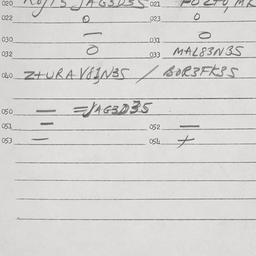 020 021
022 0 023 0
030 — 031 0
032 0 033 MAL83N35
040 Z+URAV81N35 / BOR3FK35
050 — =JAG3D35
051 — 052 —
053 — 054 +